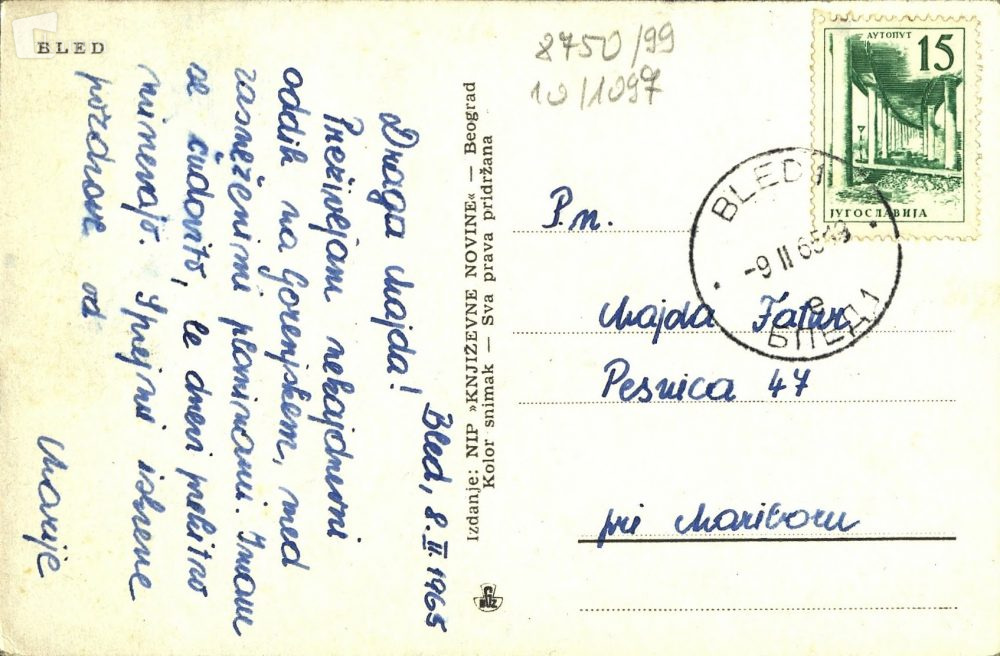 BLED
8750/99
10/1097
АУТОПУТ
15
ЈУГОСЛАВИЈА
BLED 1
-9 II 65-19
e
БЛЕД 1
Bled, 8. II. 1965
Draga Majda!
Preživljam nekajdnevni
oddih na Gorenjskem, med
zasneženimi planinami. Imam
se čudovito, le dnevi prehitro
minevajo. Sprejmi iskrene
pozdrave od
Marije
Izdanje: NIP »KNJIŽEVNE NOVINE« — Beograd
Kolor snimak — Sva prava pridržana
P.n.
Majda
Pesnica 47
pri Mariboru